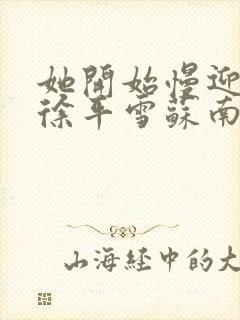 她開始慢迎
徐平雪蘇南
山海經中的大